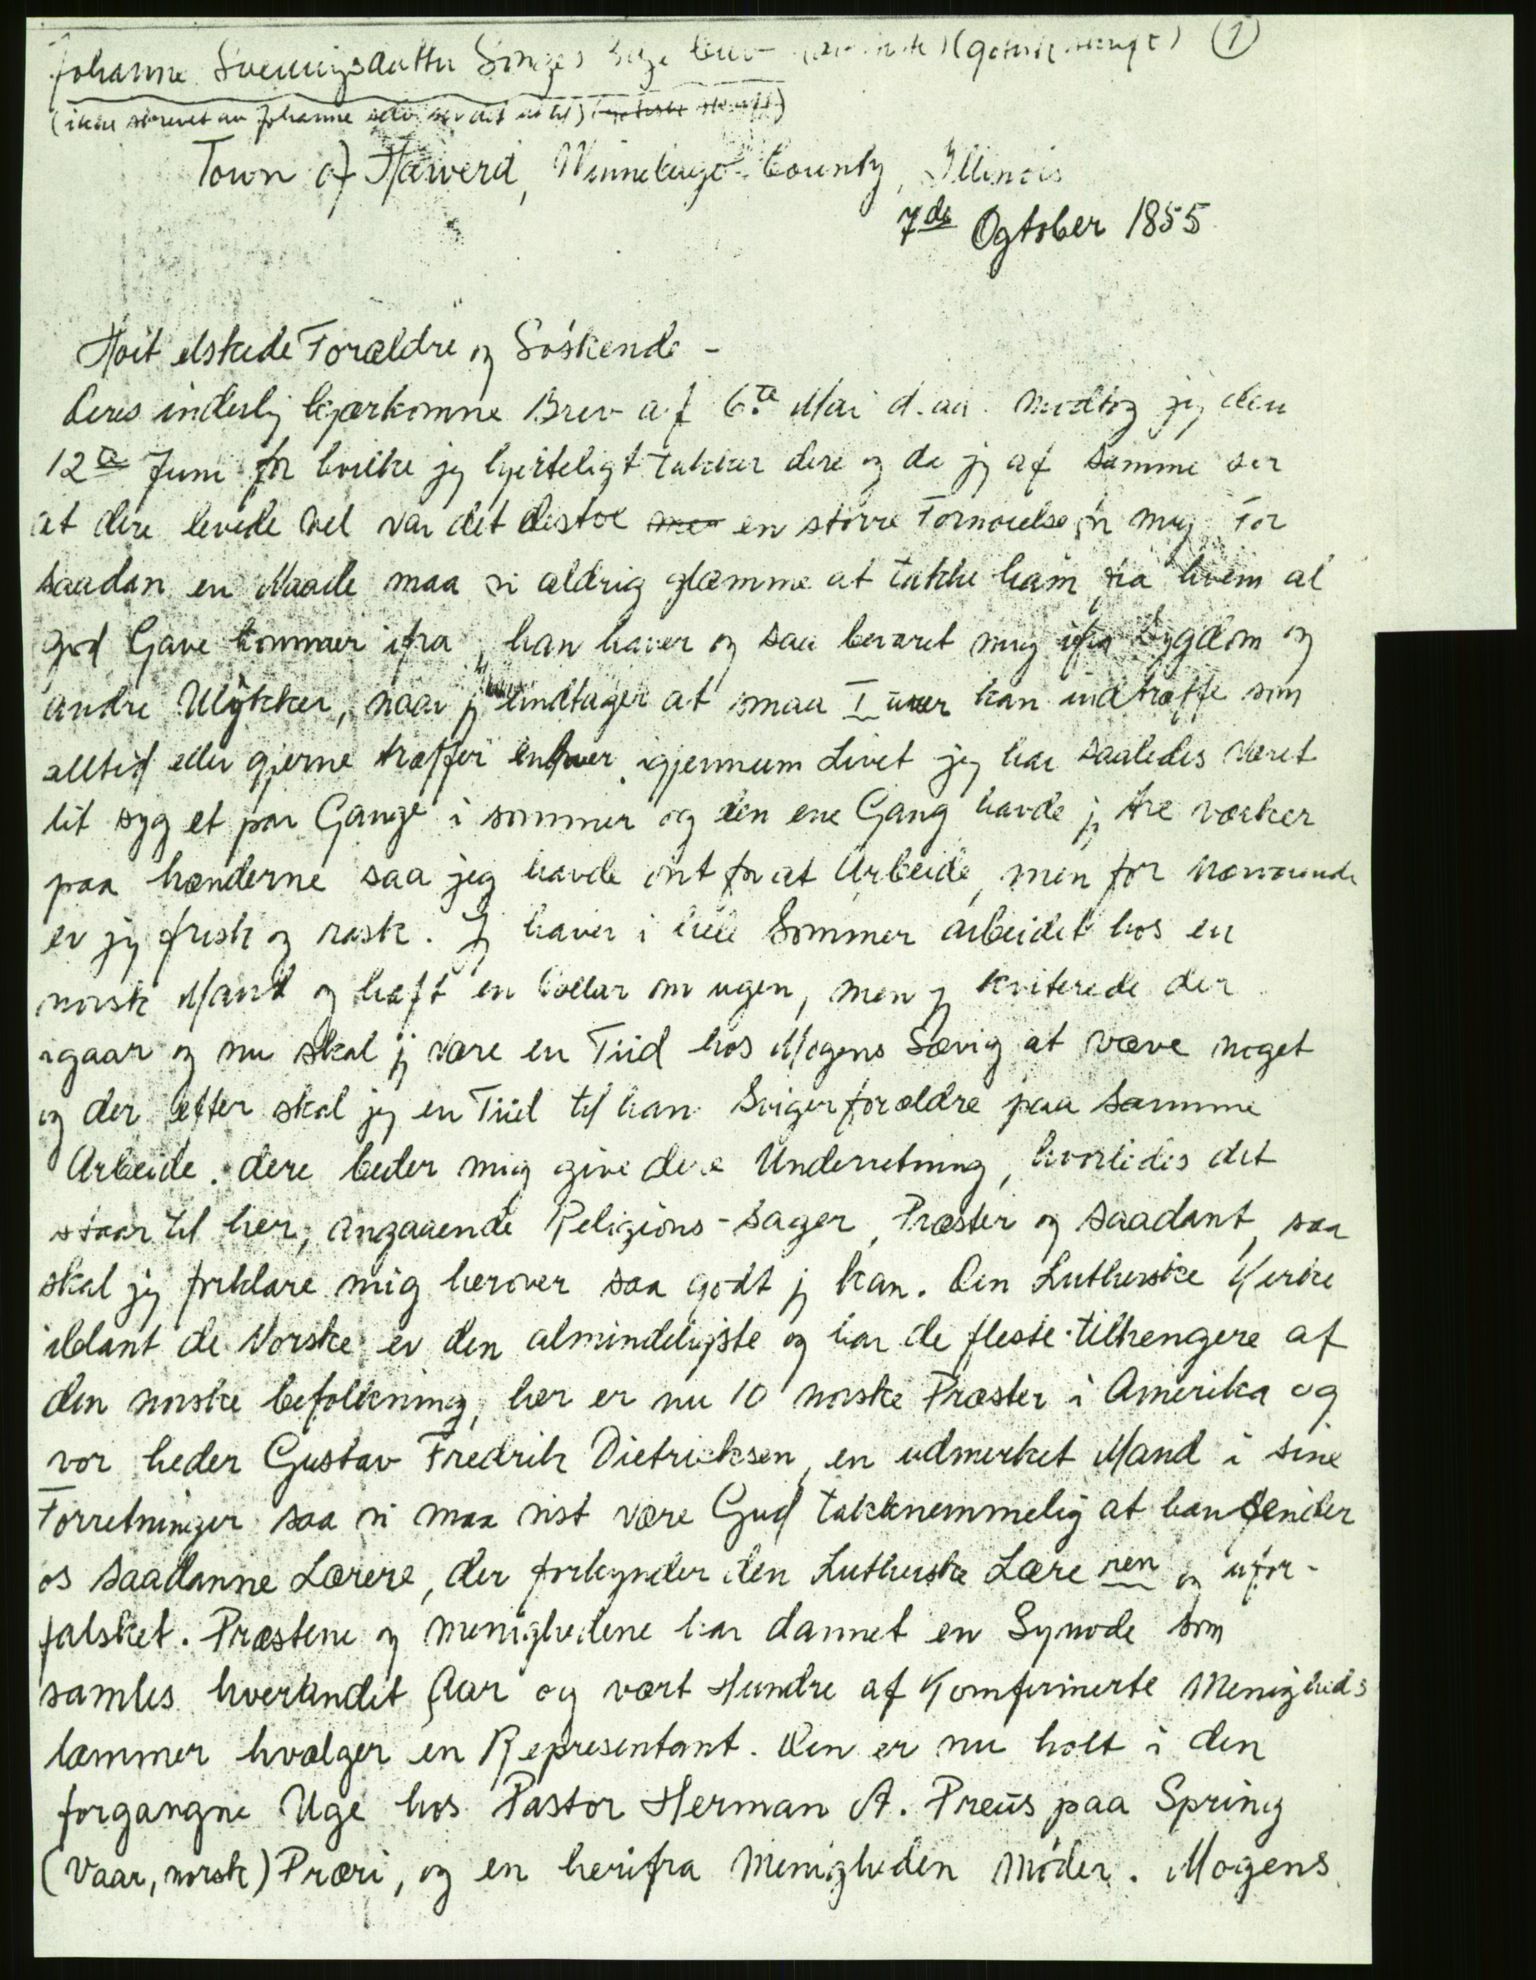 Johanne Sveningsdatter (1)
(ikke skrevet av Johanne selv
Town of Hawerd, Winnebago-County, Illinois
7de Ogtober 1855
Høit elskede Forældre og Søskende -
Deres inderlig kjærkomne Brev af 6te Mai d. aa. modtog jeg den
12te Juni for hvilke jeg hjerteligt takker dere og da jeg af samme ser
at dere levede vel var det destoe en større Fornøielse for mig. For
saadan en Naade maa vi aldrig glæmme at takke ham fra hvem al
god Gave kommer ifra, han haver og saa bevaret mig ifra Sygdom og
andre Ulykker, naar jeg undtager at smaa kan indtræffe som
alltid eller gjerne træffer enhver igjennem Livet jeg har saaledes været
lit syg et par Gange i sommer og den ene Gang havde jeg tre værker
paa hænderne saa jeg havde ont for at Arbeide, men for nærværende
er jeg frisk og rask. Jeg haver i hele Sommer arbeidet hos en
norsk Mand og haft en Dollar om ugen, men jeg kviterede der
igaar og nu skal jeg være en Tiid hos Mogens Sævig at væve noget
og der efter skal jeg en Tiid til han Svigerforældre paa samme
Arbeide. dere beder mig give dere Underretning, hvorledes det
staar til her, angaaende Religions-sager, Præster og saadant, saa
skal jeg forklare mig herover saa godt jeg kan. Den Lutherske Kerke
iblant de Norske er den almindeligste og har de fleste tilhengere af
den norske befolkning, her er nu 10 norske Præster i Amerika og
vor heder Gustav Fredrik Dietricksen, en udmerket Mand i sine
Forretninger saa vi maa vist være Gud takknemmelig at han sender
os saadanne Lærere, der forkynder den Lutherske Lære ren og ufor-
falsket. Præstene og menighedene har dannet en Synode som
samles hverandet Aar og vært Hundre af Komfirmerte Menigheds
læmmer hvælger en Representant. Den er nu holt i den
forgangne Uge hos Pastor Herman A. Preüs paa Spring
(Vaar, norsk) Præri, og en herifra Menigheden Møder. Mogens